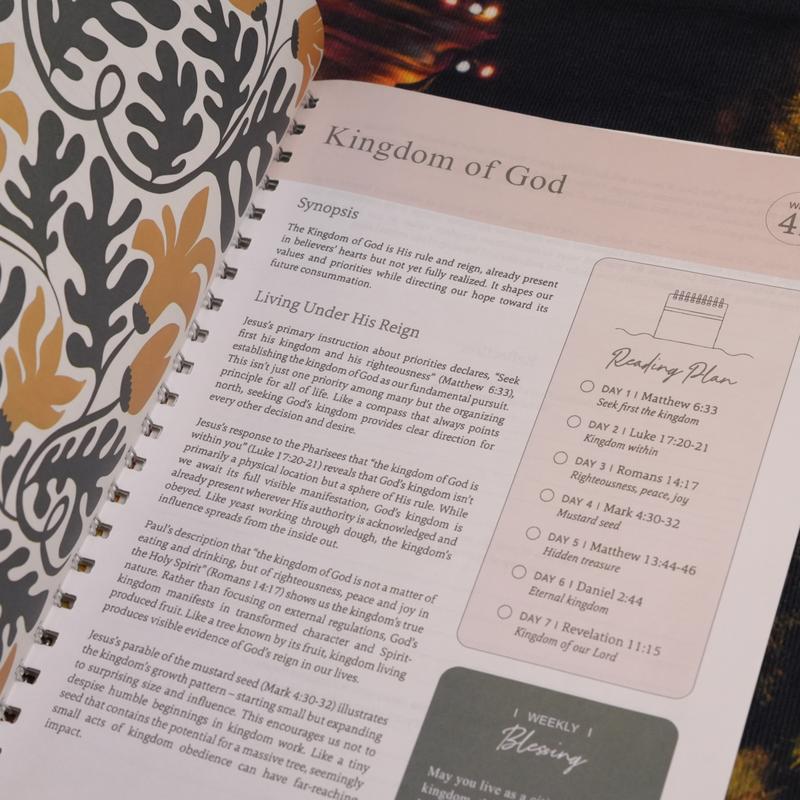 Kingdom of God
Synopsis
The Kingdom of God is His rule and reign, already present
in believers' hearts but not yet fully realized. It shapes our
values and priorities while directing our hope toward its
future consummation.
Living Under His Reign
Jesus's primary instruction about priorities declares, "Seek
first his kingdom and his righteousness" (Matthew 6:33),
establishing the kingdom of God as our fundamental pursuit.
This isn't just one priority among many but the organizing
principle for all of life. Like a compass that always points
north, seeking God's kingdom provides clear direction for
every other decision and desire.
Jesus's response to the Pharisees that "the kingdom of God is
within you" (Luke 17:20-21) reveals that God's kingdom isn't
primarily a physical location but a sphere of His rule. While
we await its full visible manifestation, God's kingdom is
already present wherever His authority is acknowledged and
obeyed. Like yeast working through dough, the kingdom's
influence spreads from the inside out.
Paul's description that "the kingdom of God is not a matter of
eating and drinking, but of righteousness, peace and joy in
the Holy Spirit" (Romans 14:17) shows us the kingdom's true
nature. Rather than focusing on external regulations, God's
kingdom manifests in transformed character and Spirit-
produced fruit. Like a tree known by its fruit, kingdom living
produces visible evidence of God's reign in our lives.
Jesus's parable of the mustard seed (Mark 4:30-32) illustrates
the kingdom's growth pattern – starting small but expanding
to surprising size and influence. This encourages us not to
despise humble beginnings in kingdom work. Like a tiny
seed that contains the potential for a massive tree, seemingly
small acts of kingdom obedience can have far-reaching
impact.
Reading Plan
DAY 1 | Matthew 6:33
Seek first the kingdom
DAY 2 | Luke 17:20-21
Kingdom within
DAY 3 | Romans 14:17
Righteousness, peace, joy
DAY 4 | Mark 4:30-32
Mustard seed
DAY 5 | Matthew 13:44-46
Hidden treasure
DAY 6 | Daniel 2:44
Eternal kingdom
DAY 7 | Revelation 11:15
Kingdom of our Lord
| WEEKLY |
Blessing
May you live as a
kingdom